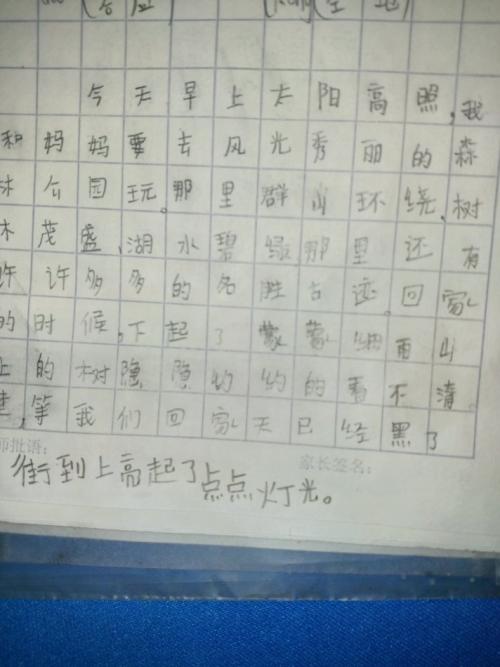 今天早上太阳高照,我
和妈妈要去风光秀丽的森
林公园玩。那里群山环绕,树
木茂盛,湖水碧绿,那里还有
许许多多的名胜古迹。回家
的时候,下起了蒙蒙细雨山
上的树隐隐约约的看不清
楚,等我们回家天已经黑了
师批语:
家长签名:
街到上亮起了点点灯光。